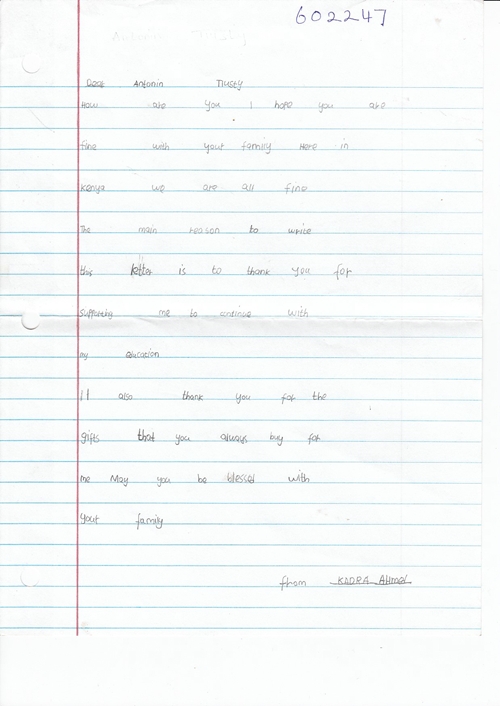 602247
Dear Antonin Tlusty
How are you I hope you are
fine with your family Here in
Kenya we are all fine
The main reason to write
this letter is to thank you for
supporting me to continue with
my education
I also thank you for the
gifts that you always buy for
me May you be blessed with
your family
from KADRA Ahmed